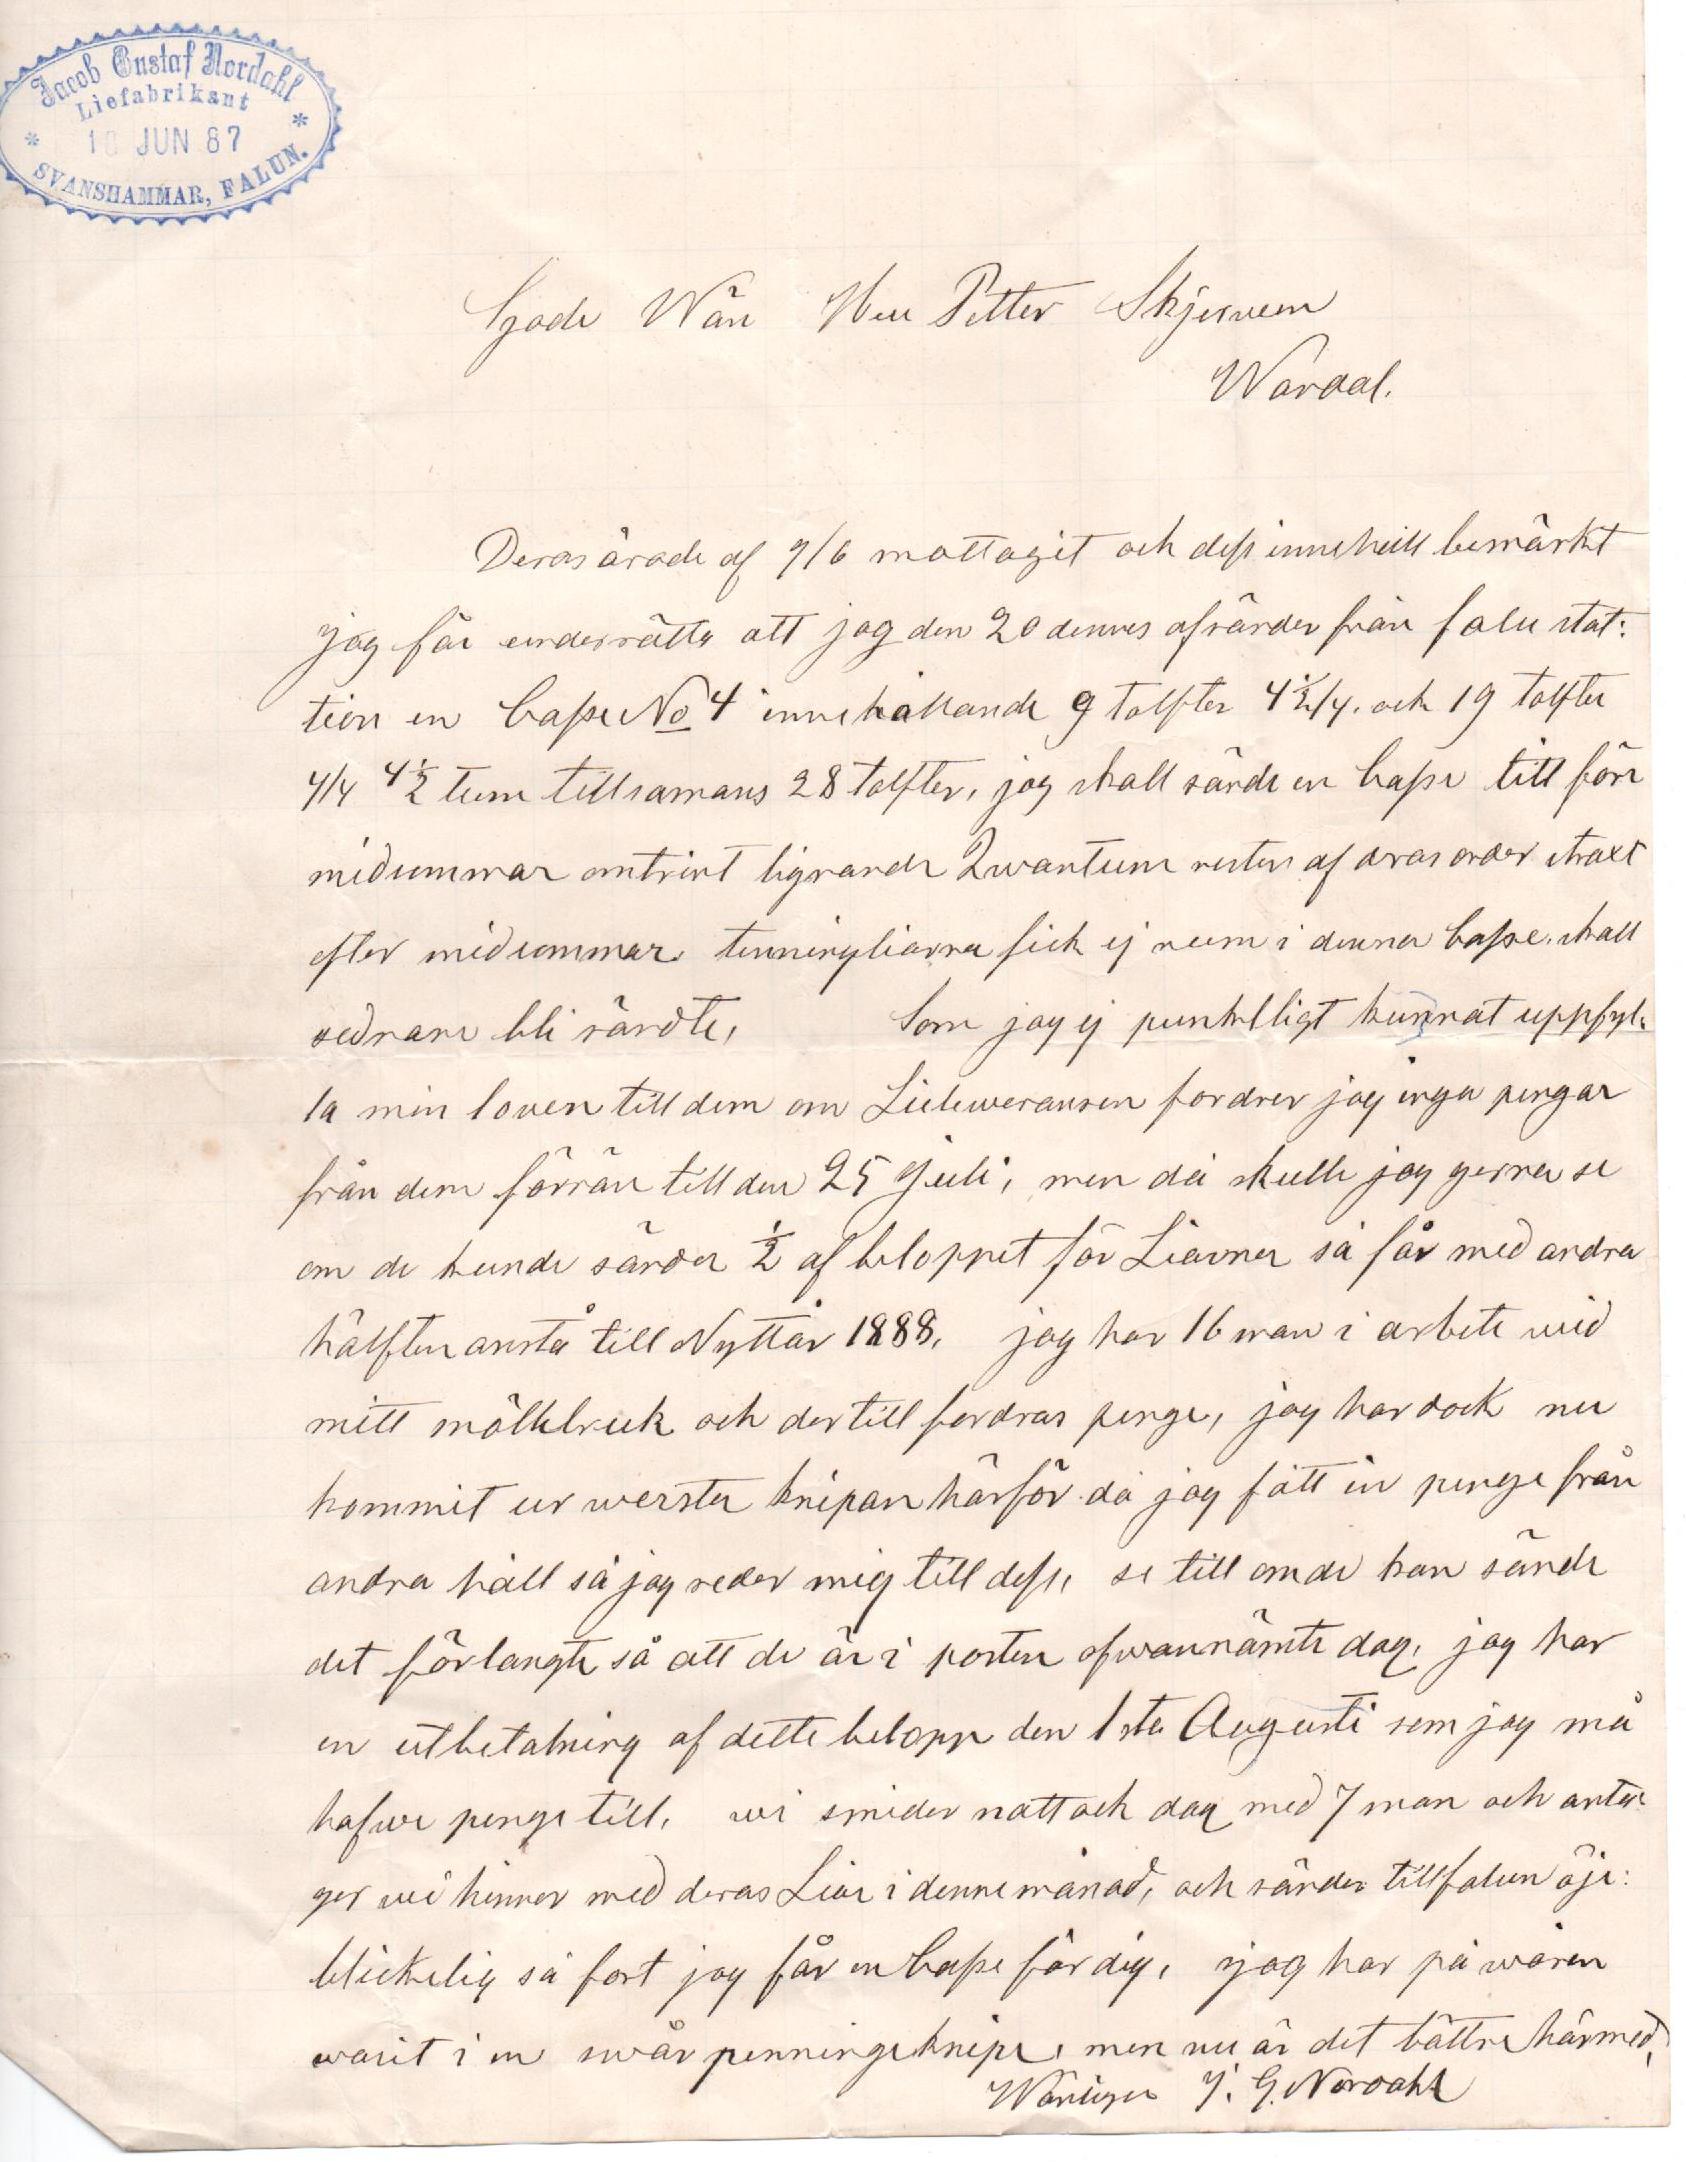 Jacob Gustaf Nordahl
Liefabrikant
10 JUN 87
SVANSHAMMAR, FALUN.
Gode Wän Herr Petter Skjerwem
Wardal.
Deras ärade af 9/6 mottagit och dess innehåll bemärkt
jag får underrätta att jag den 20 dennes afsänder från falu stat:
tion en Casse No 4 innehållande 9 tolfter 4½/4. och 19 tolfter
4/4 4½ tum tillsamans 28 tolfter, jag skall sände en Casse till före
midsommar omtrint lignande Qwantum resten af deras order straxt
efter midsommar. tenningliarna fick ej rum i denna Casse. skall
sednare bli sändte, Som jag ej punktligt kunnat uppfyl:
la min loven till dem om Lieleweransen fordrer jag inga pengar
från dem förrän till den 25 Juli, men då skulle jag gerna se
om de kunde sända ½ af beloppet för Liarna så får med andra
hälften anstå till Nyttår 1888. jag har 16 man i arbete wid
mitt mälkbruk och der till fordras penge, jag har dock nu
kommit ur wersta knipan härför då jag fått in penge från
andra håll så jag reder mig till dess, se till om de kan sände
det förlangte så att de är i posten ofwannämte dag, jag har
en utbetalning af dette belopp den 1sta Augusti som jag må
hafwe penge till, wi smider natt och dag med 7 man och anta:
ger wi hinner med deras Liar i denne månad, och sänder till falun öje:
blickelig så fort jag får en Casse färdig, jag har på wåren
warit i en swår penningeknipe, men nu är det bättre härmed,
Wänligen J. G. Nordahl